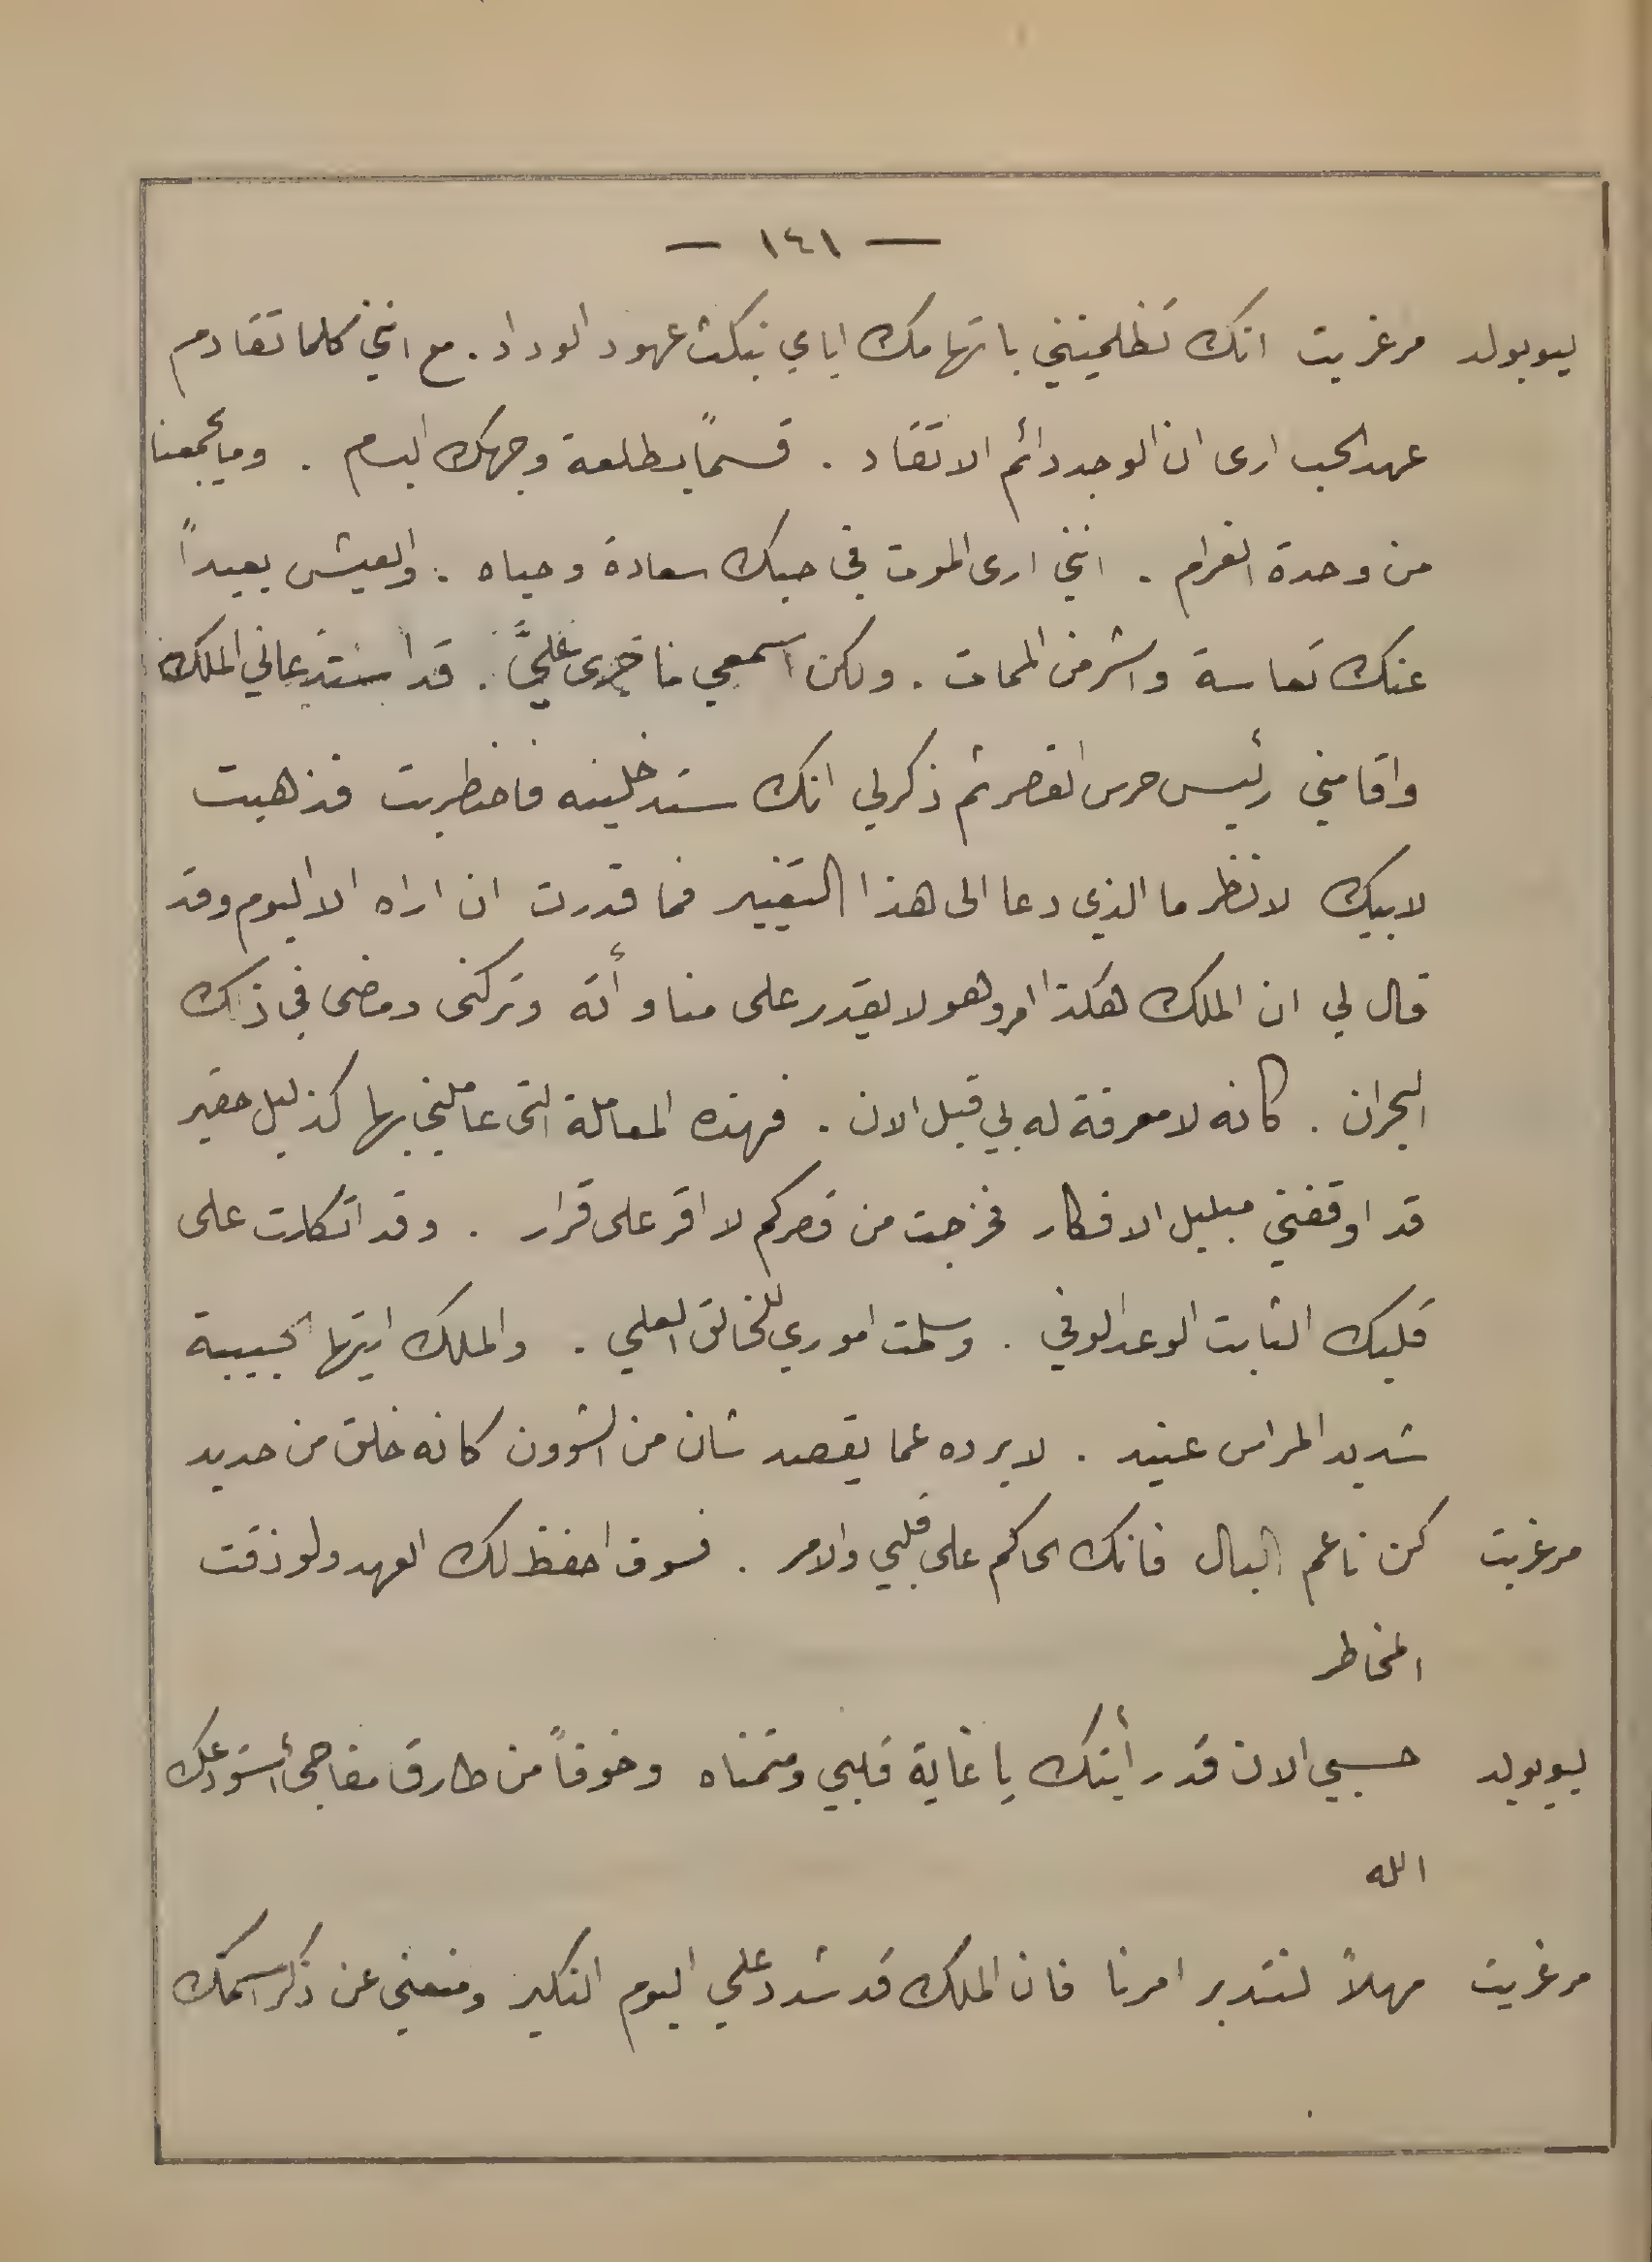 — ١٤١ —
ليوبولد مرغريت انك تظلمينني باتهامك اياي بنكث عهود الوداد . مع انني كلما تقادم
عهد الحب ارى ان الوجد دائم الاتقاد . قسماً بطلعة وجهك البسام . وما يجمعنا
من وحدة الغرام . انني ارى الموت في حبك سعادة وحياه . والعيش بعيداً
عنك تعاسة واشر من الممات . ولكن اسمعي ما جرى عليَّ . قد استدعاني الملك
واقامني رئيس حرس القصر ثم ذكر لي انك ستدخلينه فاضطربت فذهبت
لابيك لانظر ما الذي دعا الى هذا التغيير فما قدرت ان اراه الا اليوم وقد
قال لي ان الملك هكذا امر وهو لا يقدر على مناوأته وتركني ومضى في ذلك
البحران . كانه لا معرفة له بي قبل الان . فهذه المعاملة التي عاملني بها كذليل حقير
قد اوقفني مبلبل الافكار فخرجت من قصركم لا اقر على قرار . وقد اتكلت على
قلبك الثابت الوعد الوفي . وسلمت اموري للخالق العلي . والملك ايتها الحبيبة
شديد المراس عنيد . لا يرده عما يقصد شان من الشوون كانه خلق من حديد
مرغريت كن ناعم البال فانك الحاكم على قلبي والامر . فسوف احفظ لك العهد ولو ذقت
المخاطر
ليوبولد حسبي الان قد رأيتك يا غاية قلبي ومتمناه وخوفاً من طارق مفاجئ أستودعك
الله
مرغريت مهلاً لنتدبر امرنا فان الملك قد شدد علي اليوم النكير ومنعني عن ذكر اسمك